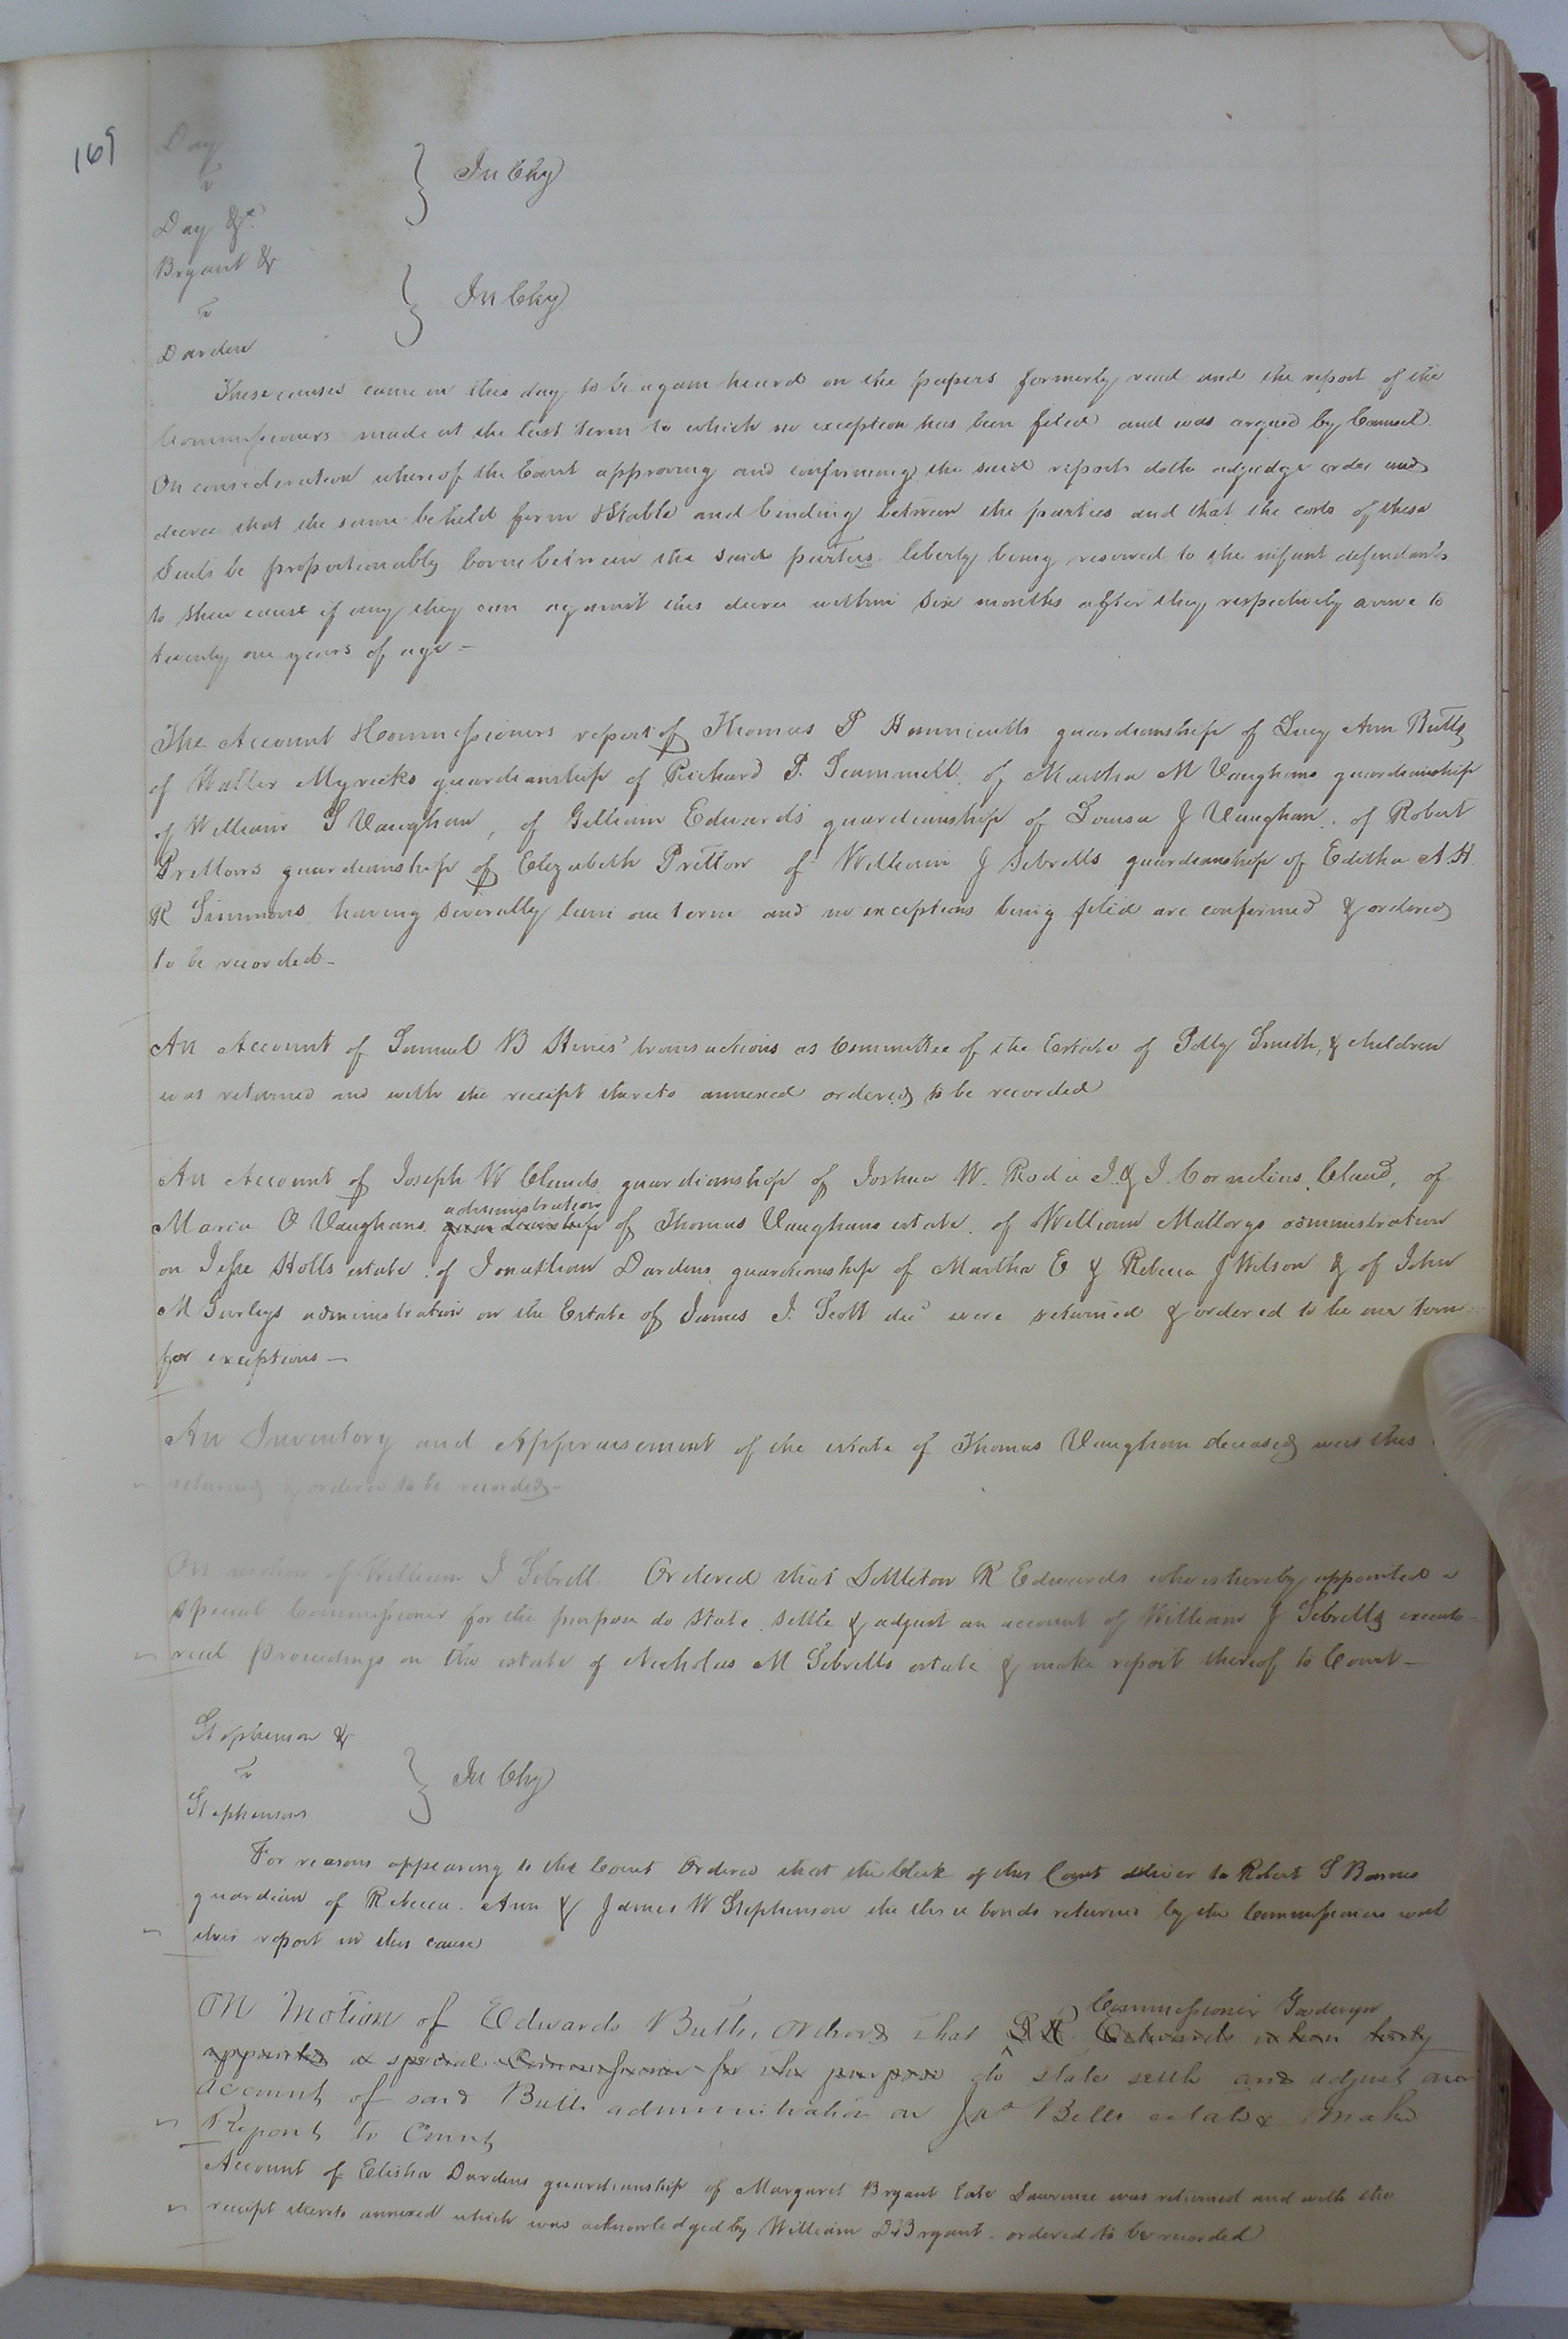 169
Day
v
Day &c.
} In Chy
Bryant &
v
Darden
} In Chy
These causes came on this day to be again heard on the papers formerly read and the report of the
Commissioners made at the last term to which no exception has been filed and was argued by Counsel.
On consideration whereof the Court approving and confirming the said reports doth adjudge order and
decree that the same be held firm & Stable and binding between the parties and that the costs of these
Suits be proportionably borne between the said parties. liberty being reserved to the infant defendants
to shew cause if any they can against this decree within Six months after they respectively arrive to
twenty one years of age –
The Account & Commissioners report of Thomas P Hunnicutts guardianship of Lucy Ann Butts
of Walter Myricks guardianship of Richard P. Scammell. of Martha M Vaughans guardianship
of William S Vaughan, of Gilliam Edwards guardianship of Louisa J Vaughan. of Robert
Prettows guardianship of Elizabeth Prettow of William J Sebrells guardianship of Editha A. H.
R Simmons having severally lain one term and no exceptions being filed are confirmed & ordered
to be recorded –
An Account of Samuel B Hines' transactions as Committee of the Estate of Polly Smith, & children
was returned and with the receipt thereto annexed ordered to be recorded
An Account of Joseph W Clauds guardianship of Joshua W. J. & J. Cornelius Claud, of
administration
Maria O Vaughans guardianship of Thomas Vaughans estate. of William Mallorys administration
on Jesse Holts estate. of Jonathan Dardens guardianship of Martha E & Rebecca J Wilson & of John
M Gurleys administration on the Estate of James J. Scott decd were returned & ordered to lie one term
for exceptions –
An Inventory and Appraisement of the estate of Thomas Vaughan deceased was this
returned & ordered to be recorded –
On motion of William J Sebrell. Ordered that Littleton R Edwards who is hereby appointed a
special Commissioner for the purpose do state. settle & adjust an account of William J Sebrells executo-
rial Proceedings on the estate of Nicholas M Sebrells estate & make report thereof to Court –
Stephenson &
v
Stephensons
} In Chy
For reasons appearing to the Court Ordered that the Clerk of this Court deliver to Robert S Barnes
guardian of Rebecca. Ann & James W Stephenson the three bonds returned by the Commissioners with
their report in this cause
Commissioner Goodwyn
On Motion of Edwards Butts, Ordered that L R Edwards whom hereby
appointed a special Commissioner for the purpose do state settle and adjust an
account of said Butts administration on Jas Bells estate & make
Report to Court
Account of Elisha Dardens guardianship of Margaret Bryant late Lawrence was returned and with the
receipt thereto annexed which was acknowledged by William D Bryant. ordered to be recorded